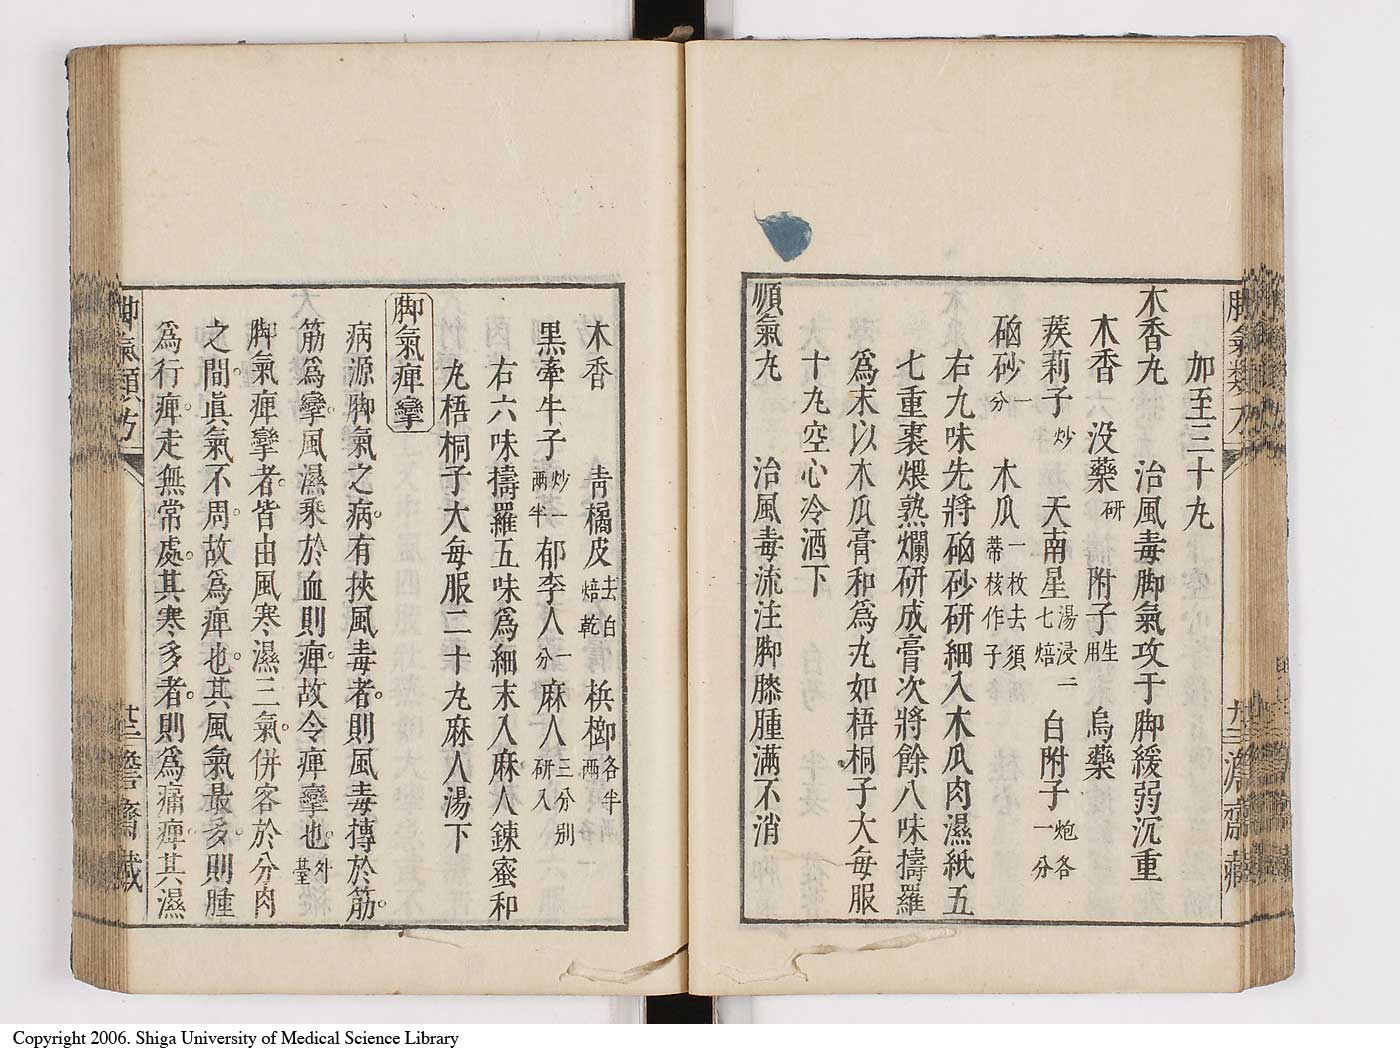 加至三十丸
木香丸　治風毒脚氣攻于脚緩弱沉重
木香　没藥研　附子生用　烏藥
蒺莉子炒　天南星湯浸二七焙　白附子炮各一分
硇砂一分　木瓜一枚去須蒂核作子
右九味先將硇砂研細入木瓜肉濕紙五
七重裹煨熟爛研成膏次將餘八味擣羅
爲末以木瓜膏和爲丸如梧桐子大每服
十丸空心冷酒下
順氣丸　治風毒流注脚膝腫滿不消
木香　青橘皮去白焙乾　梹榔各半兩
黒牽牛子炒一兩半　郁李人一分　麻人三分別研入
右六味擣羅五味爲細末入麻人鍊蜜和
丸梧桐子大每服二十丸麻人湯下
脚氣痺攣
病源脚氣之病。有挾風毒者。則風毒搏於筋。
筋爲攣。風濕乘於血則痺。故令痺攣也。外臺
脚氣痺攣者。皆由風寒濕三氣。併客於分肉
之間。眞氣不周。故爲痺也。其風氣最多。則腫
爲行痺。走無常處。其寒多者。則爲痛痺。其濕
脚氣類方
澹齋藏
Copyright 2006. Shiga University of Medical Science Library